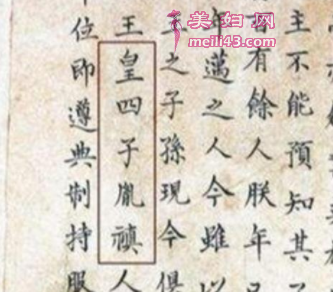 美妇网
meili43.com
主不能預知其
有餘人朕年
邁之人今雖以
之子孫現今俱
王皇四子胤禛人
位即遵典制持服